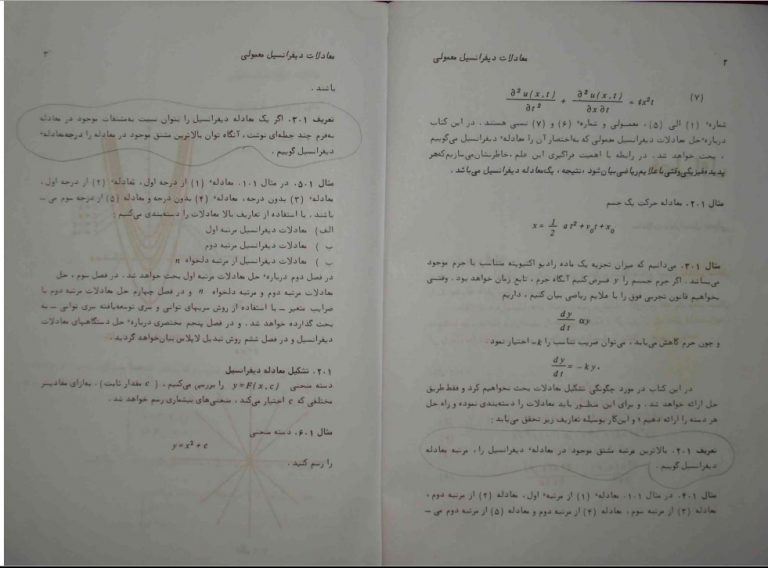 ۲
معادلات دیفرانسیل معمولی
∂²u(x,t)/∂t² + ∂²u(x,t)/∂x∂t = 4x²t (۷)
شماره (۱) الی (۵)، معمولی و شماره (۶) و (۷) نسبی هستند. در این کتاب
درباره حل معادلات دیفرانسیل معمولی که به‌اختصار آن را معادله دیفرانسیل می‌گوییم
، بحث خواهد شد. در رابطه با اهمیت فراگیری این علم، خاطرنشان می‌سازیم که هر
پدیده فیزیکی وقتی با علایم ریاضی بیان شود، نتیجه، یک معادله دیفرانسیل می‌باشد.
مثال ۲.۰۱ معادله حرکت یک جسم
x = 1/2 at² + v₀t + x₀
مثال ۳.۰۱ می‌دانیم که میزان تجزیه یک ماده رادیو اکتیویته متناسب با جرم موجود
می‌باشد. اگر جرم جسم را y فرض کنیم آنگاه جرم، تابع زمان خواهد بود. وقتی
بخواهیم قانون تجربی فوق را با علایم ریاضی بیان کنیم، داریم
dy/dt αy
و چون جرم کاهش می‌یابد، می‌توان ضریب تناسب را -k اختیار نمود.
dy/dt = -ky.
در این کتاب در مورد چگونگی تشکیل معادلات بحث نخواهیم کرد و فقط طریق
حل ارائه خواهد شد. و برای این منظور باید معادلات را دسته‌بندی نموده و راه حل
هر دسته را ارائه دهیم، و این کار بوسیله تعاریف زیر تحقق می‌یابد:
تعریف ۲.۰۱ بالاترین مرتبه مشتق موجود در معادله دیفرانسیل را، مرتبه معادله
دیفرانسیل گوییم.
مثال ۴.۰۱ در مثال ۱.۰۱ معادله (۱) از مرتبه اول، معادله (۲) از مرتبه دوم،
معادله (۳) از مرتبه سوم، معادله (۴) از مرتبه دوم و معادله (۵) از مرتبه دوم می –
معادلات دیفرانسیل معمولی
۳
باشند.
تعریف ۳.۰۱ اگر یک معادله دیفرانسیل را بتوان نسبت به مشتقات موجود در معادله
به‌فرم چند جمله‌ای نوشت، آنگاه توان بالاترین مشتق موجود در معادله را درجه معادله
دیفرانسیل گوییم.
مثال ۵.۰۱ در مثال ۱.۰۱ معادله (۱) از درجه اول، معادله (۲) از درجه اول،
معادله (۳) بدون درجه، معادله (۴) بدون درجه و معادله (۵) از درجه سوم می –
باشند. با استفاده از تعاریف بالا معادلات را دسته‌بندی می‌کنیم:
الف) معادلات دیفرانسیل مرتبه اول
ب) معادلات دیفرانسیل مرتبه دوم
پ) معادلات دیفرانسیل از مرتبه دلخواه n
در فصل دوم درباره حل معادلات مرتبه اول بحث خواهد شد. در فصل سوم، حل
معادلات مرتبه دوم و مرتبه دلخواه n و در فصل چهارم حل معادلات مرتبه دوم با
ضرایب متغیر – با استفاده از روش سریهای توانی و سری توسعه‌یافته سری توانی – به
بحث گذارده خواهد شد. و در فصل پنجم مختصری درباره حل دستگاههای معادلات
دیفرانسیل و در فصل ششم روش تبدیل لاپلاس بیان خواهد گردید.
۲.۰۱ تشکیل معادله دیفرانسیل
دسته منحنی y=F(x,c) را بررسی می‌کنیم، (c مقدار ثابت). به‌ازای مقادیر
مختلفی که c اختیار می‌کند، منحنی‌های بیشماری رسم خواهد شد.
مثال ۶.۰۱ دسته منحنی
y=x²+c
را رسم کنید.